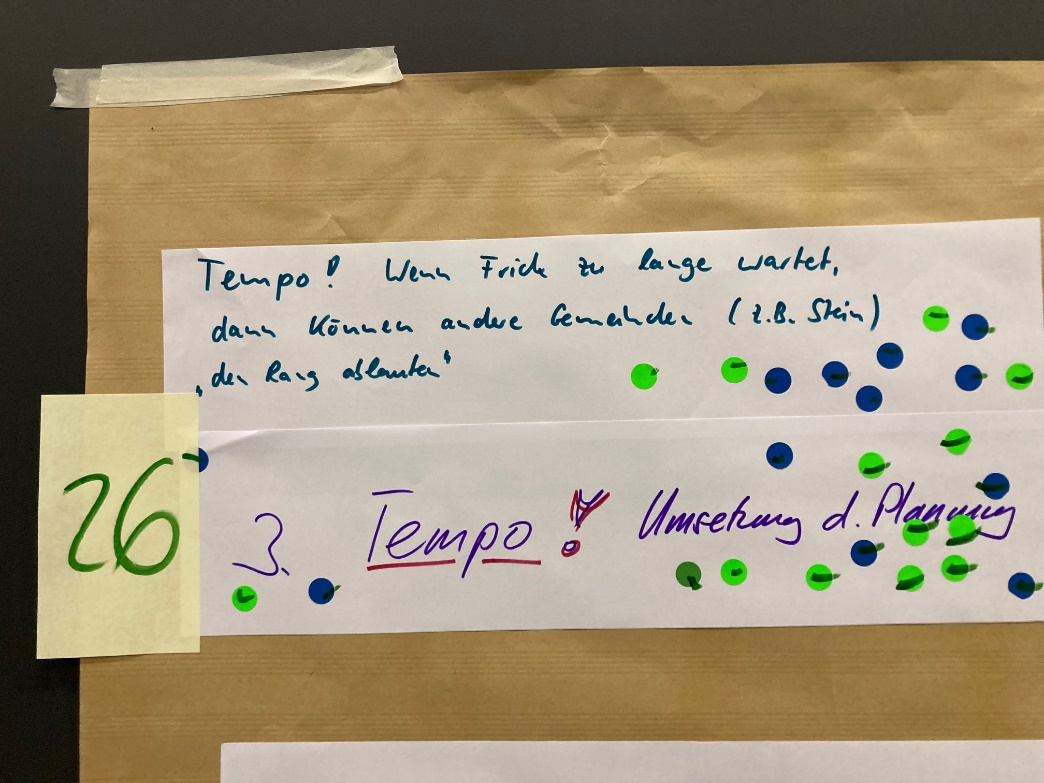 Tempo! Wenn Frick zu lange wartet,
dann können andere Gemeinden (z.B. Stein)
„den Rang ablaufen“
26
3. Tempo! Umsetzung d. Planung